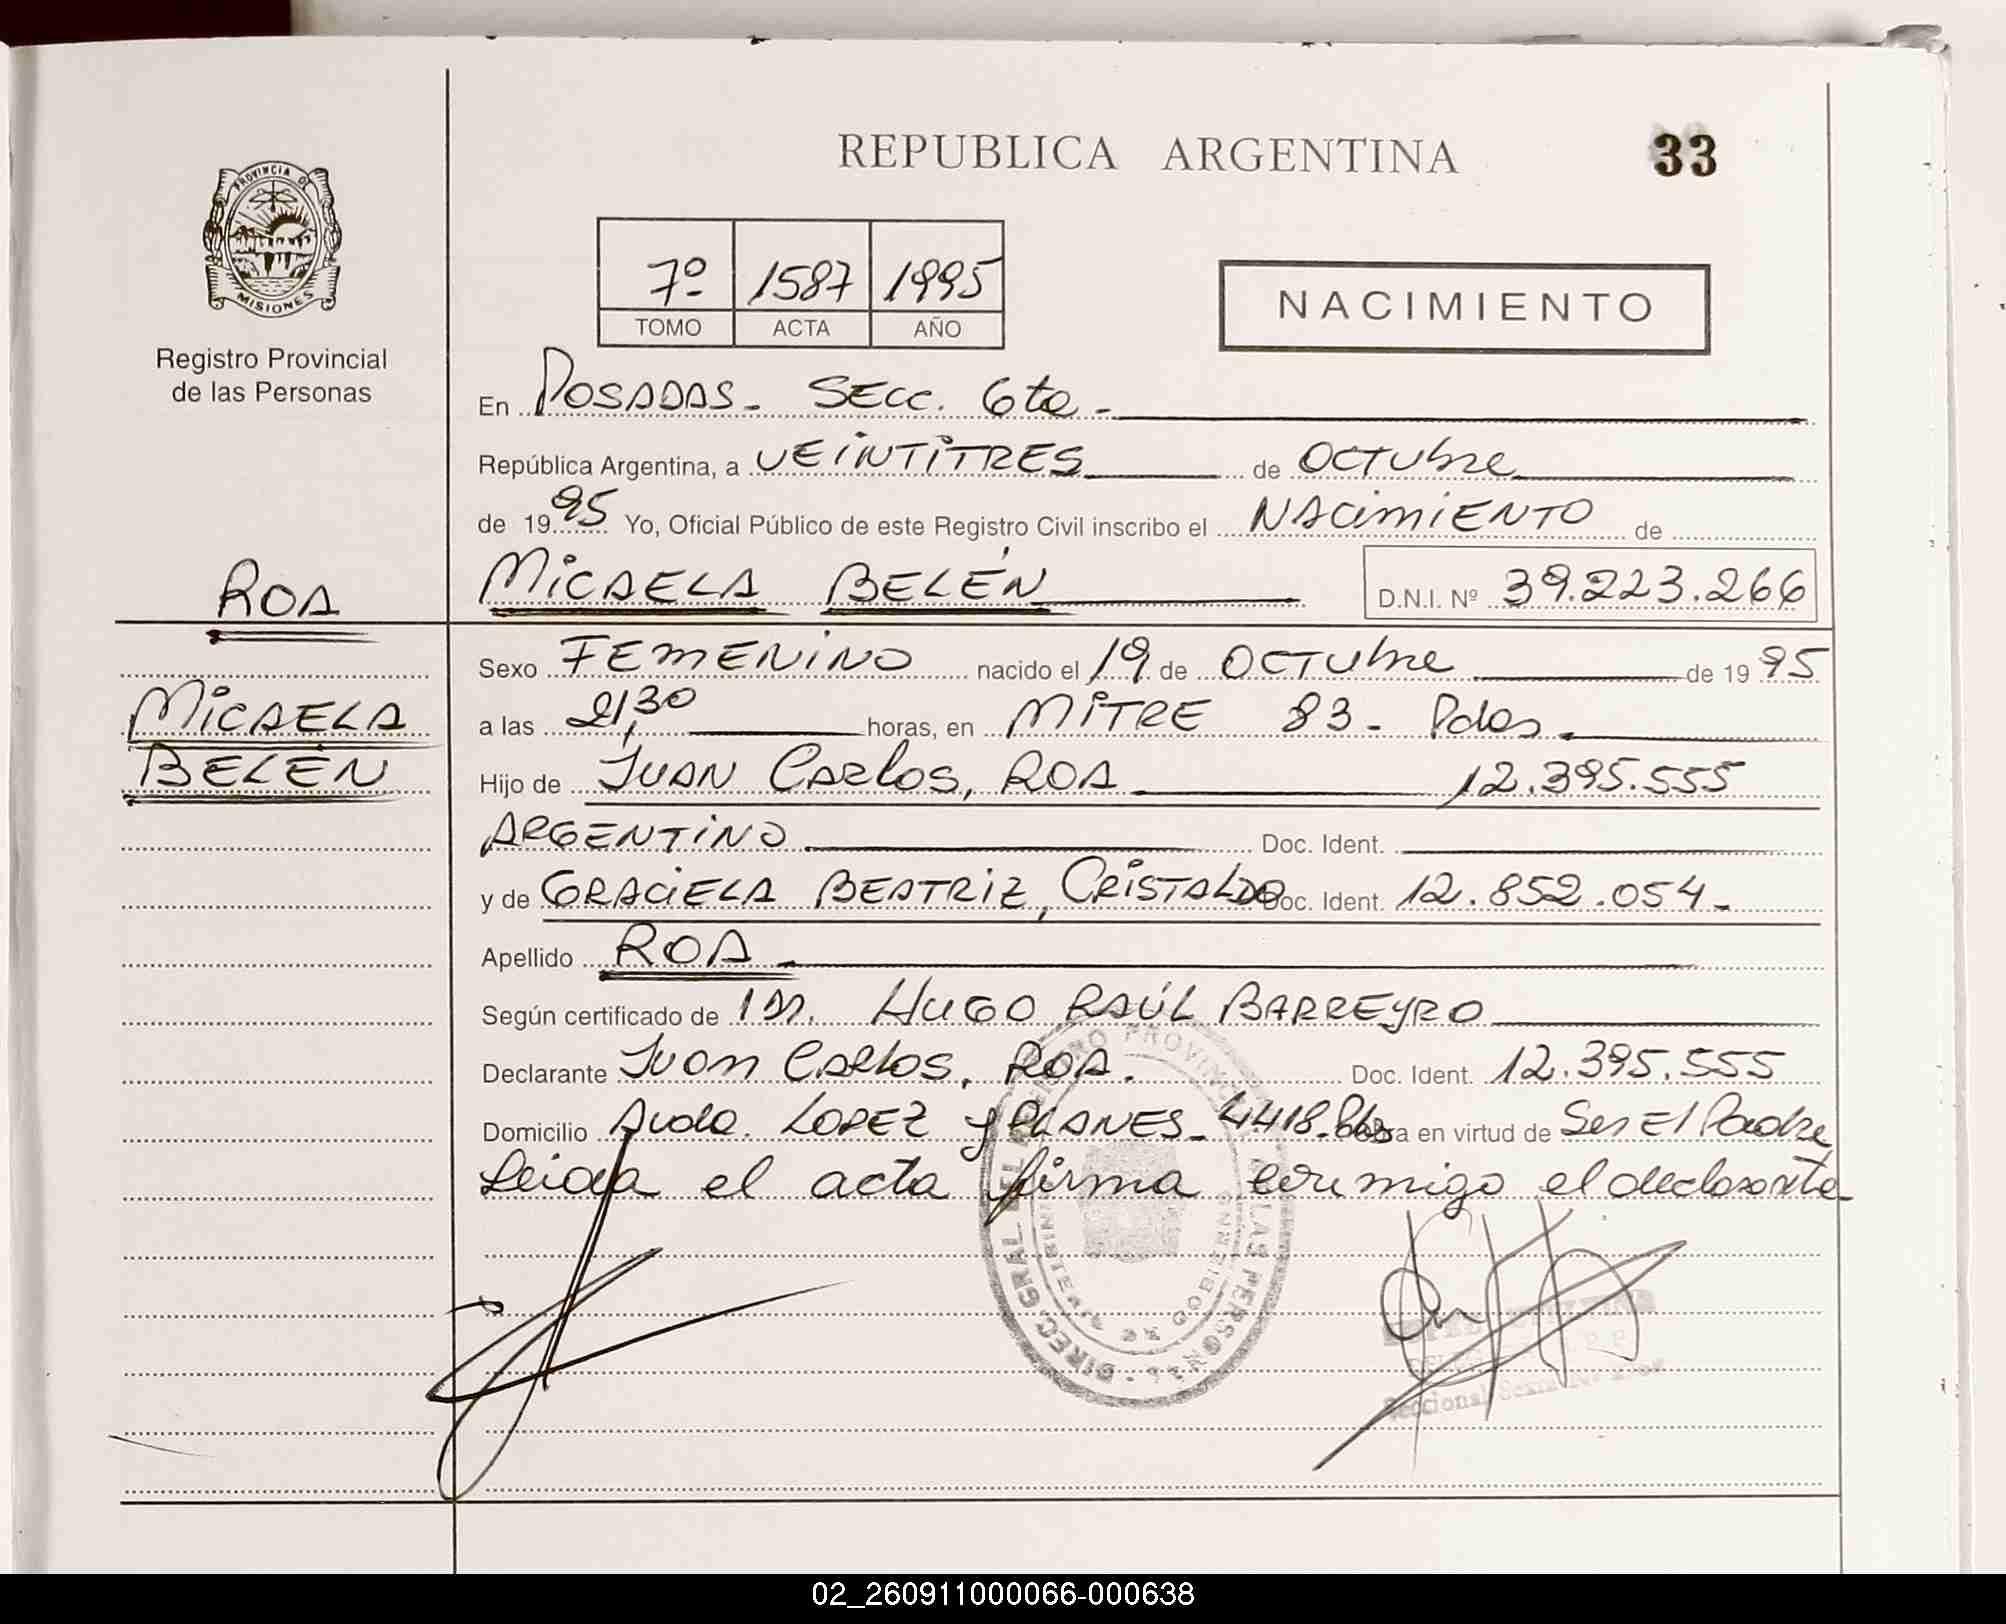 REPUBLICA ARGENTINA
33
PROVINCIA DE
MISIONES
Registro Provincial
de las Personas
7º 1587 1995
TOMO ACTA AÑO
NACIMIENTO
En POSADAS - SECC. 6ta -
República Argentina, a VEINTITRES de OCTUbre
de 1995 Yo, Oficial Público de este Registro Civil inscribo el NACIMIENTO de
ROA
MICAELA BELÉN D.N.I. Nº 39.223.266
Sexo FEMENINO nacido el 19 de OCTUbre de 1995
MICAELA
BELÉN
a las 21,30 horas, en MITRE 83 - Pdas.
Hijo de JUAN CARLOS, ROA 12.395.555
ARGENTINO Doc. Ident.
y de GRACIELA BEATRIZ, CRISTALDO Doc. Ident. 12.852.054 -
Apellido ROA
Según certificado de DR. HUGO RAÚL BARREYRO
Declarante JUAN CARLOS, ROA. Doc. Ident. 12.395.555
Domicilio Avda. LOPEZ y PLANES - 4418 - Pdas Obra en virtud de Ser El Padre
Leida el acta firma conmigo el declarante
DIREC. GRAL DEL REGISTRO PROVINCIAL DE LAS PERSONAS
DE GOBIERNO
Seccional Sexta
02_260911000066-000638